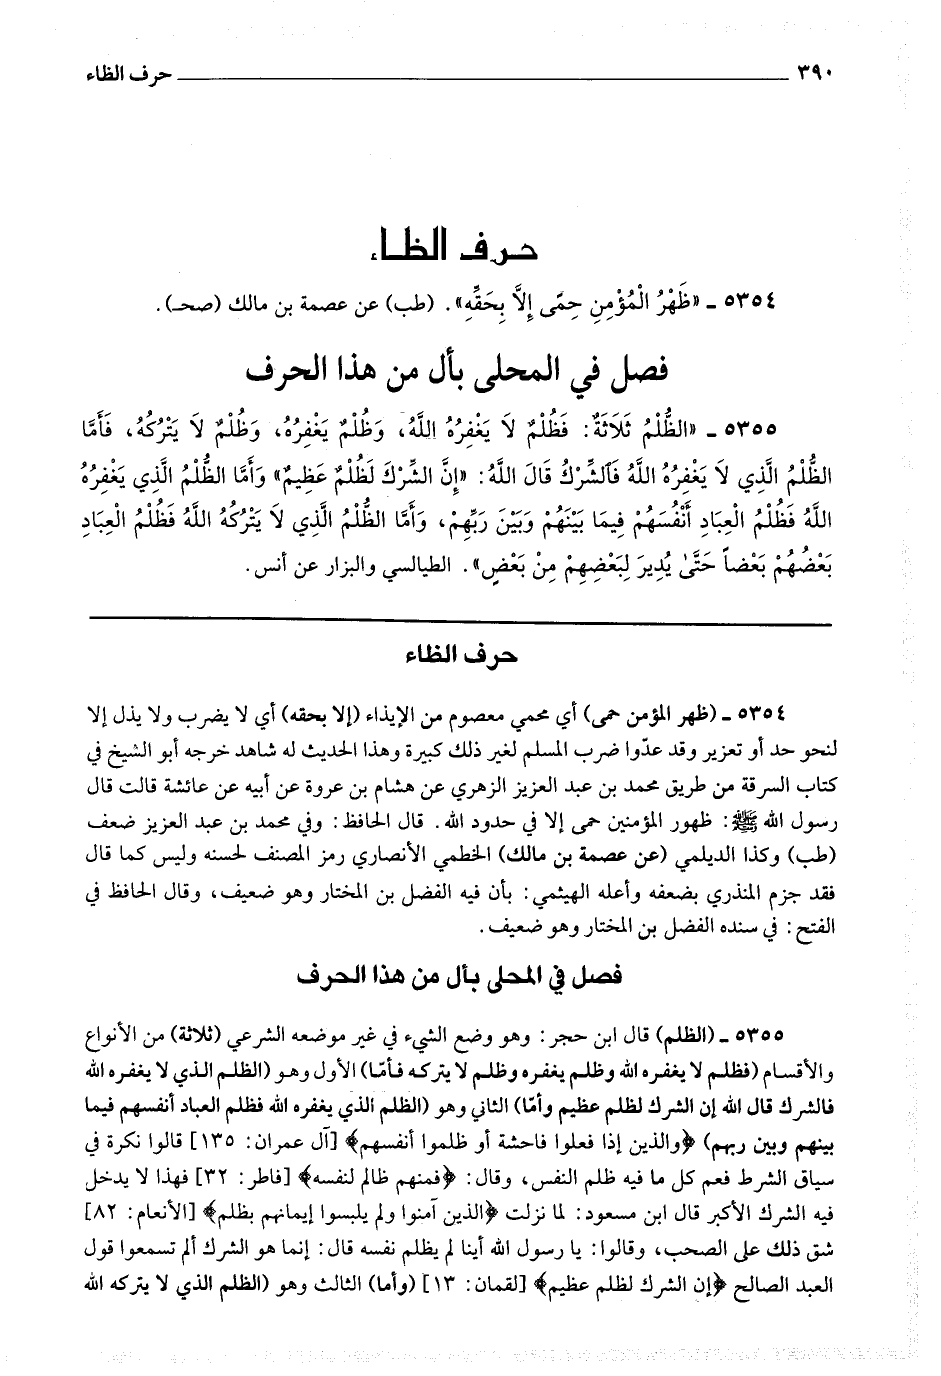 ٣٩٠ حرف الظاء
حرف الظاء
٥٣٥٤ ـ «ظَهْرُ الْمُؤْمِنِ حِمًى إِلَّا بِحَقِّهِ». (طب) عن عصمة بن مالك (صحـ).
فصل في المحلى بأل من هذا الحرف
٥٣٥٥ ـ «الظُّلْمُ ثَلَاثَةٌ: فَظُلْمٌ لَا يَغْفِرُهُ اللَّهُ، وَظُلْمٌ يَغْفِرُهُ، وَظُلْمٌ لَا يَتْرُكُهُ، فَأَمَّا
الظُّلْمُ الَّذِي لَا يَغْفِرُهُ اللَّهُ فَالشِّرْكُ قَالَ اللَّهُ: «إِنَّ الشِّرْكَ لَظُلْمٌ عَظِيمٌ» وَأَمَّا الظُّلْمُ الَّذِي يَغْفِرُهُ
اللَّهُ فَظُلْمُ الْعِبَادِ أَنْفُسَهُمْ فِيمَا بَيْنَهُمْ وَبَيْنَ رَبِّهِمْ، وَأَمَّا الظُّلْمُ الَّذِي لَا يَتْرُكُهُ اللَّهُ فَظُلْمُ الْعِبَادِ
بَعْضُهُمْ بَعْضاً حَتَّى يُدِيرَ لِبَعْضِهِمْ مِنْ بَعْضٍ». الطيالسي والبزار عن أنس.
حرف الظاء
٥٣٥٤ ـ (ظهر المؤمن حمى) أي محمي معصوم من الإيذاء (إلا بحقه) أي لا يضرب ولا يذل إلا
لنحو حد أو تعزير وقد عدّوا ضرب المسلم لغير ذلك كبيرة وهذا الحديث له شاهد خرجه أبو الشيخ في
كتاب السرقة من طريق محمد بن عبد العزيز الزهري عن هشام بن عروة عن أبيه عن عائشة قالت قال
رسول الله ﷺ: ظهور المؤمنين حمى إلا في حدود الله. قال الحافظ: وفي محمد بن عبد العزيز ضعف
(طب) وكذا الديلمي (عن عصمة بن مالك) الخطمي الأنصاري رمز المصنف لحسنه وليس كما قال
فقد جزم المنذري بضعفه وأعله الهيثمي: بأن فيه الفضل بن المختار وهو ضعيف، وقال الحافظ في
الفتح: في سنده الفضل بن المختار وهو ضعيف.
فصل في المحلى بأل من هذا الحرف
٥٣٥٥ ـ (الظلم) قال ابن حجر: وهو وضع الشيء في غير موضعه الشرعي (ثلاثة) من الأنواع
والأقسام (فظلم لا يغفره الله وظلم يغفره وظلم لا يتركه فأمّا) الأول وهو (الظلم الذي لا يغفره الله
فالشرك قال الله إن الشرك لظلم عظيم وأمّا) الثاني وهو (الظلم الذي يغفره الله فظلم العباد أنفسهم فيما
بينهم وبين ربهم) ﴿والذين إذا فعلوا فاحشة أو ظلموا أنفسهم﴾ [آل عمران: ١٣٥] قالوا نكرة في
سياق الشرط فعم كل ما فيه ظلم النفس، وقال: ﴿فمنهم ظالم لنفسه﴾ [فاطر: ٣٢] فهذا لا يدخل
فيه الشرك الأكبر قال ابن مسعود: لما نزلت ﴿الذين آمنوا ولم يلبسوا إيمانهم بظلم﴾ [الأنعام: ٨٢]
شق ذلك على الصحب، وقالوا: يا رسول الله أينا لم يظلم نفسه قال: إنما هو الشرك ألم تسمعوا قول
العبد الصالح ﴿إن الشرك لظلم عظيم﴾ [لقمان: ١٣] (وأما) الثالث وهو (الظلم الذي لا يتركه الله